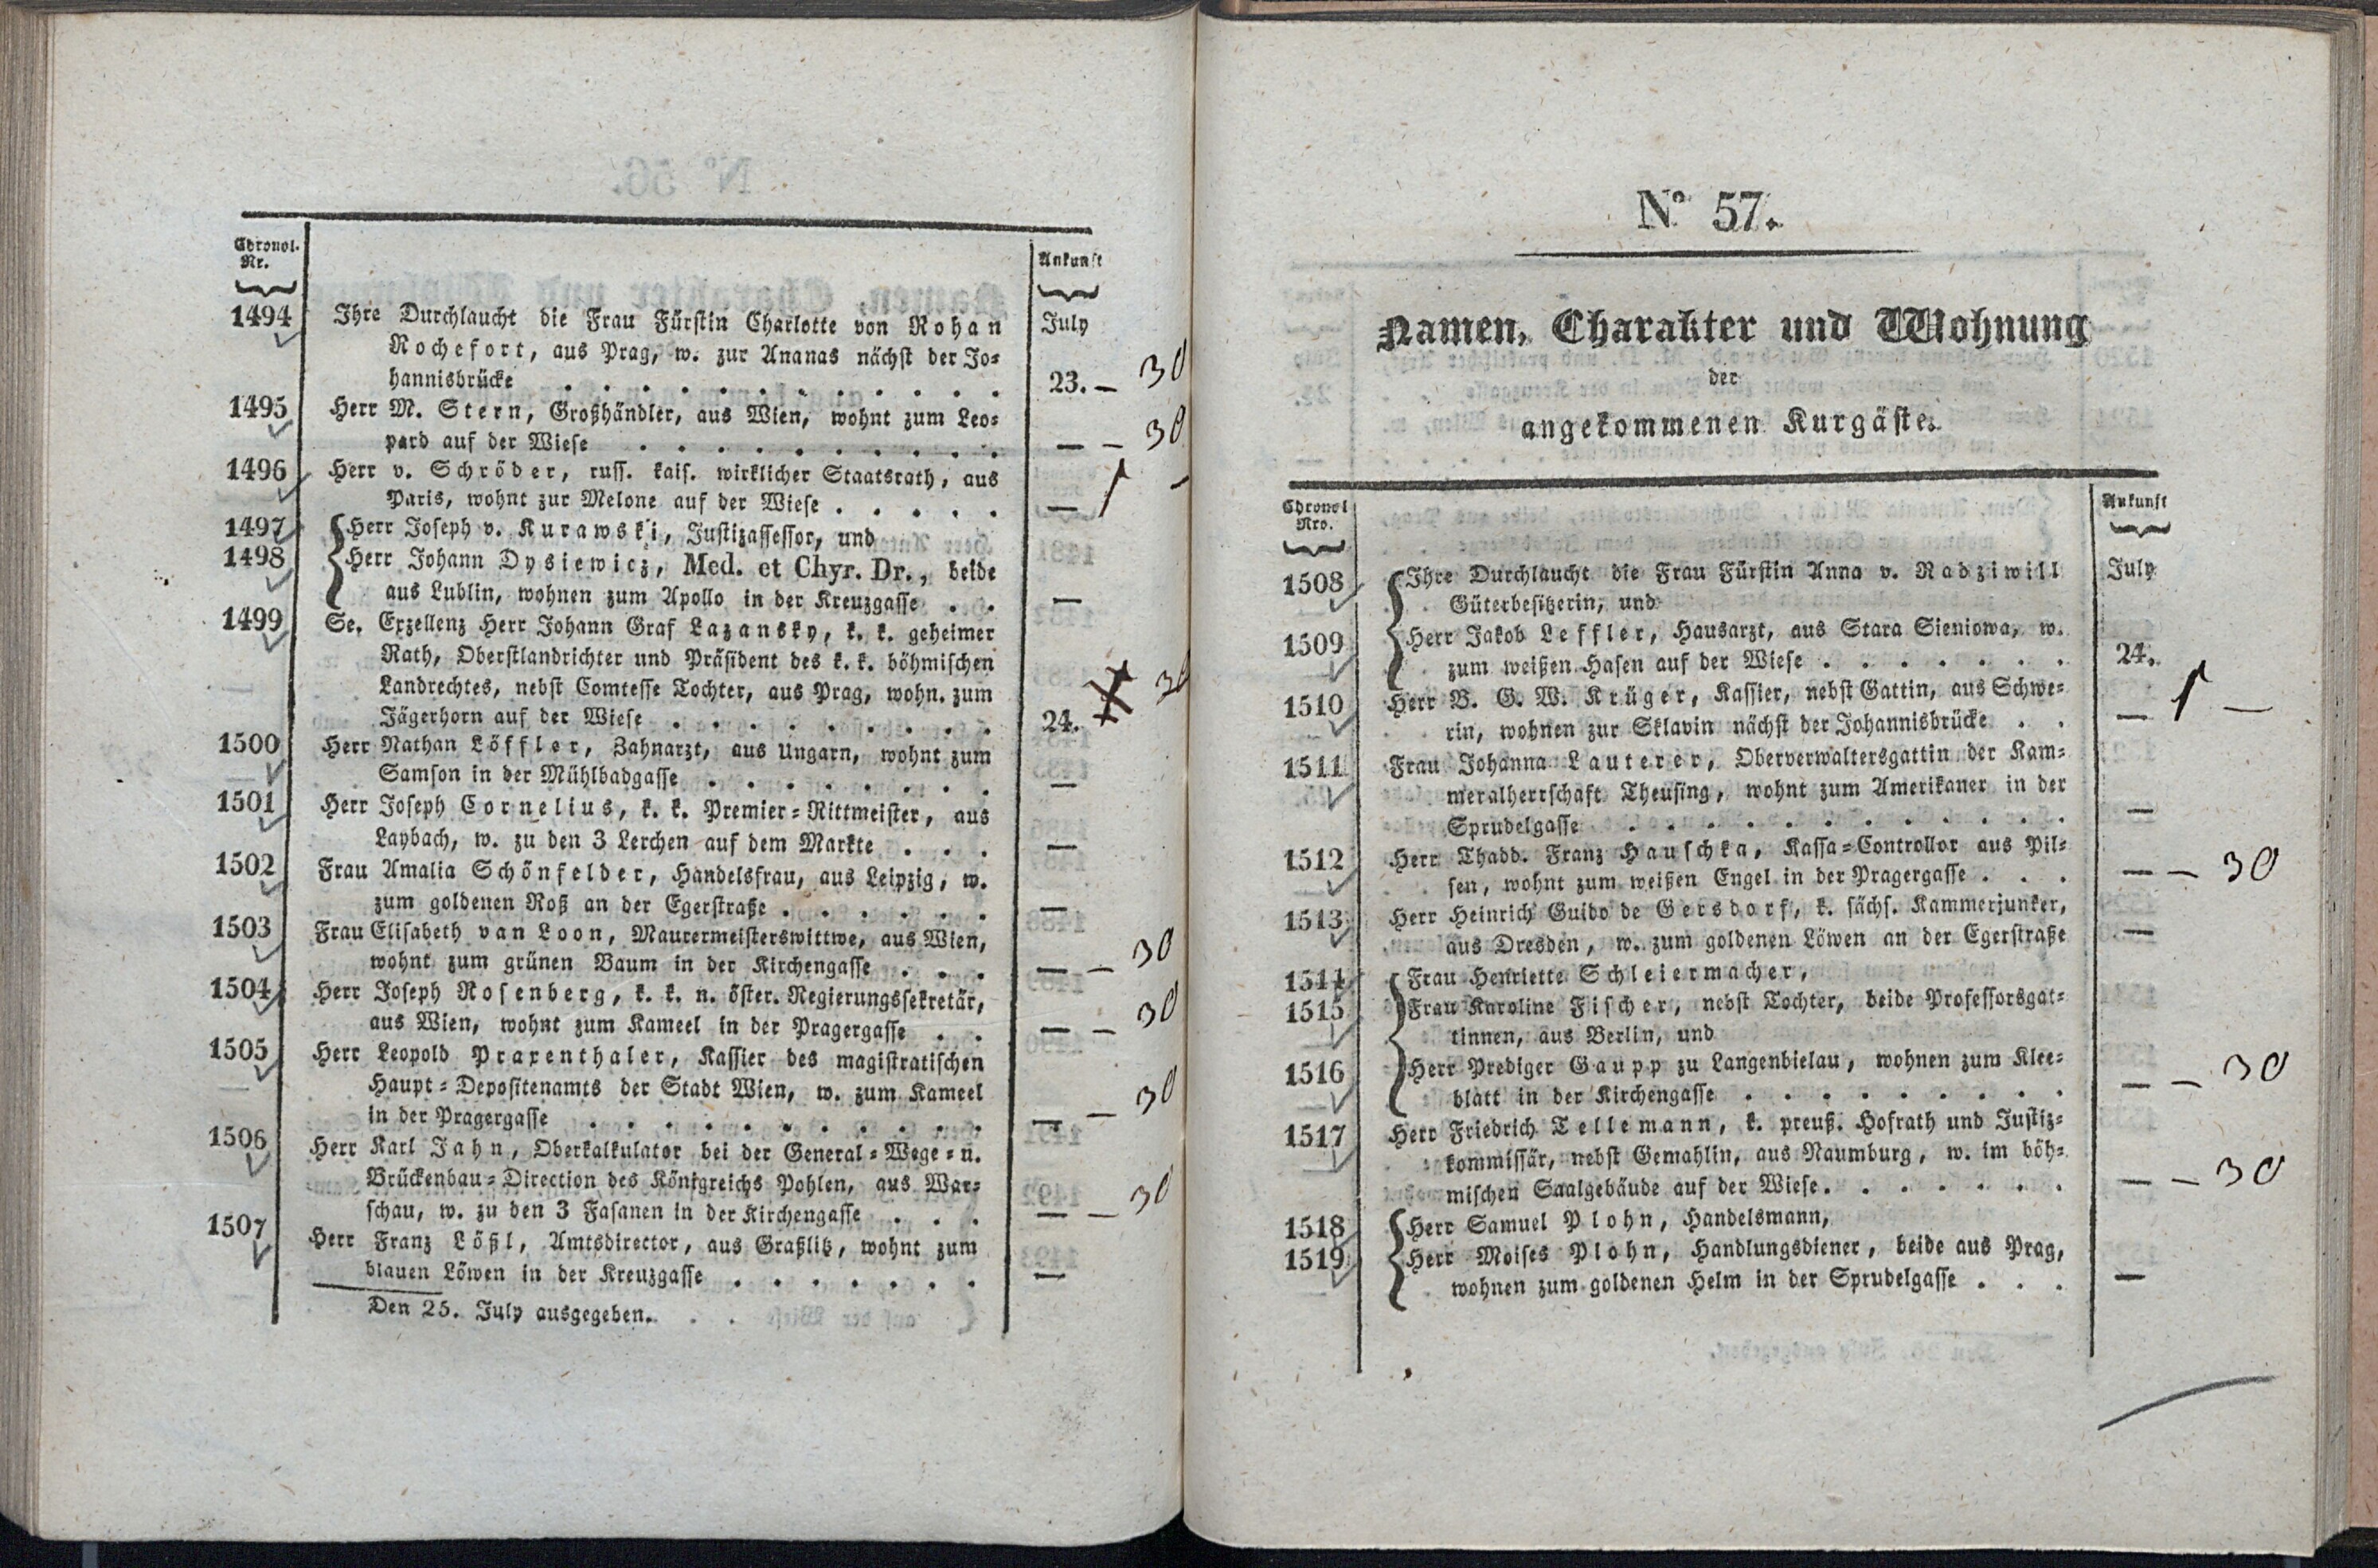 Chronol. Nr.
Ankunft
1494 Ihre Durchlaucht die Frau Fürstin Charlotte von Rohan July
Rochefort, aus Prag, w. zur Ananas nächst der Jo=
hannisbrücke . . . . . . . . . . . . 23. — 30
1495 Herr M. Stern, Großhändler, aus Wien, wohnt zum Leo=
pard auf der Wiese . . . . . . . . . . — — 30
1496 Herr v. Schröder, russ. kais. wirklicher Staatsrath, aus
Paris, wohnt zur Melone auf der Wiese . . . . . — 1 —
1497 Herr Joseph v. Kurawski, Justizassessor, und
1498 Herr Johann Dysiewicz, Med. et Chyr. Dr., beide
aus Lublin, wohnen zum Apollo in der Kreuzgasse . . —
1499 Se. Exzellenz Herr Johann Graf Lazansky, k. k. geheimer
Rath, Oberstlandrichter und Präsident des k. k. böhmischen
Landrechtes, nebst Comtesse Tochter, aus Prag, wohn. zum
Jägerhorn auf der Wiese . . . . . . . . . 24. 30
1500 Herr Nathan Löffler, Zahnarzt, aus Ungarn, wohnt zum
Samson in der Mühlbadgasse . . . . . . . . —
1501 Herr Joseph Cornelius, k. k. Premier=Rittmeister, aus
Laybach, w. zu den 3 Lerchen auf dem Markte . . . —
1502 Frau Amalia Schönfelder, Handelsfrau, aus Leipzig, w.
zum goldenen Roß an der Egerstraße . . . . . . —
1503 Frau Elisabeth van Loon, Maurermeisterswittwe, aus Wien,
wohnt zum grünen Baum in der Kirchengasse . . . — — 30
1504 Herr Joseph Rosenberg, k. k. n. öster. Regierungssekretär,
aus Wien, wohnt zum Kameel in der Pragergasse . . — — 30
1505 Herr Leopold Praxenthaler, Kassier des magistratischen
Haupt=Depositenamts der Stadt Wien, w. zum Kameel
in der Pragergasse . . . . . . . . . . . — — 30
1506 Herr Karl Jahn, Oberkalkulator bei der General=Wege=u.
Brückenbau=Direction des Königreichs Pohlen, aus War=
schau, w. zu den 3 Fasanen in der Kirchengasse . . . — — 30
1507 Herr Franz Lößl, Amtsdirector, aus Graßlitz, wohnt zum
blauen Löwen in der Kreuzgasse . . . . . . . —
Den 25. July ausgegeben.
Nº 57.
Namen, Charakter und Wohnung
der
angekommenen Kurgäste.
Chronol Nro.
Ankunft
1508 Ihre Durchlaucht die Frau Fürstin Anna v. Radziwill July
Güterbesitzerin, und
1509 Herr Jakob Leffler, Hausarzt, aus Stara Sieniowa, w.
zum weißen Hasen auf der Wiese . . . . . . . 24.
1510 Herr B. G. W. Krüger, Kassier, nebst Gattin, aus Schwe=
rin, wohnen zur Sklavin nächst der Johannisbrücke . . — 1 —
1511 Frau Johanna Lauterer, Oberverwaltersgattin der Kam=
meralherrschaft Theusing, wohnt zum Amerikaner in der
Sprudelgasse . . . . . . . . . . . . —
1512 Herr Thadd. Franz Hauschka, Kassa=Controllor aus Pil=
sen, wohnt zum weißen Engel in der Pragergasse . . . — — 30
1513 Herr Heinrich Guido de Gersdorf, k. sächs. Kammerjunker,
aus Dresden, w. zum goldenen Löwen an der Egerstraße —
1514 Frau Henriette Schleiermacher,
1515 Frau Karoline Fischer, nebst Tochter, beide Professorsgat=
tinnen, aus Berlin, und
1516 Herr Prediger Gaupp zu Langenbielau, wohnen zum Klee=
blatt in der Kirchengasse . . . . . . . . . — — 30
1517 Herr Friedrich Tellemann, k. preuß. Hofrath und Justiz=
kommissär, nebst Gemahlin, aus Naumburg, w. im böh=
mischen Saalgebäude auf der Wiese . . . . . . . — — 30
1518 Herr Samuel Plohn, Handelsmann,
1519 Herr Moises Plohn, Handlungsdiener, beide aus Prag,
wohnen zum goldenen Helm in der Sprudelgasse . . . —